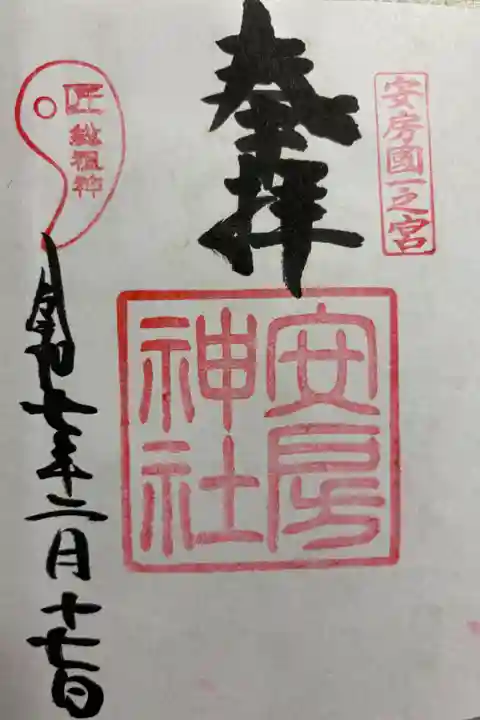 安房國一之宮
奉拝
安房
神社
匠総祖神
令和七年二月十七日